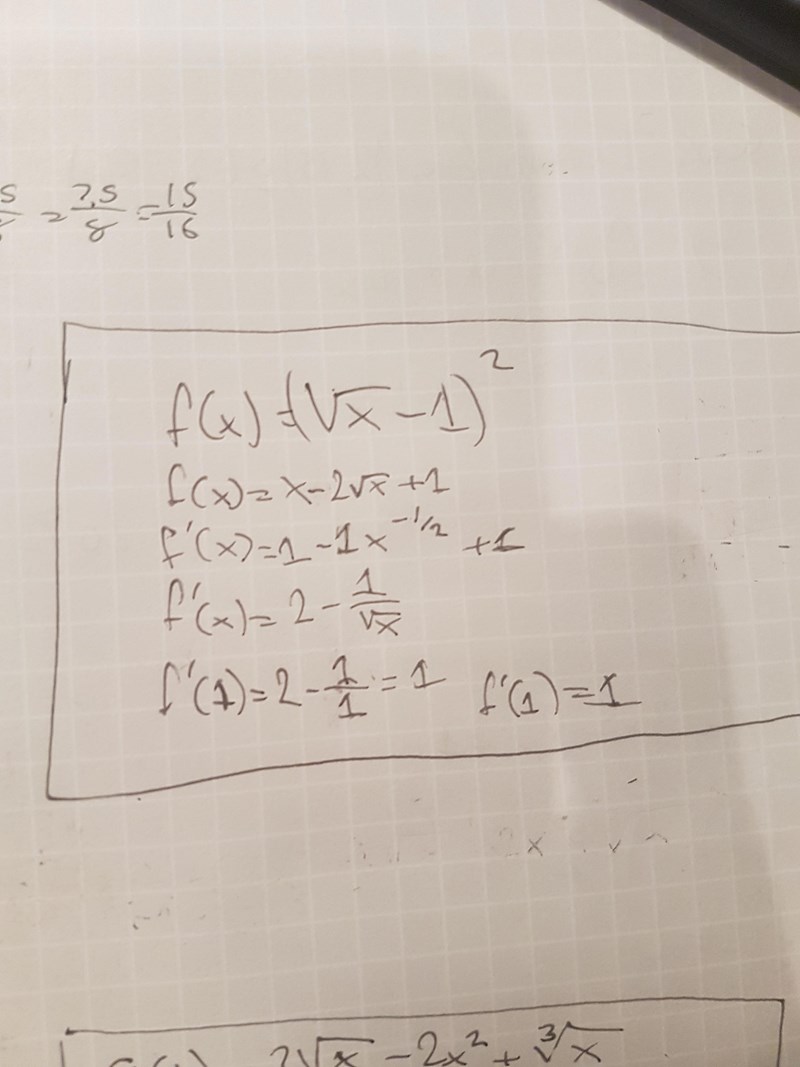 = 7,5/8 = 15/16
f(x) = (√x - 1)²
f(x) = x - 2√x + 1
f'(x) = 1 - 1x^(-1/2) + 1
f'(x) = 2 - 1/√x
f'(1) = 2 - 1/1 = 1 f'(1) = 1
2√x - 2x² + ³√x